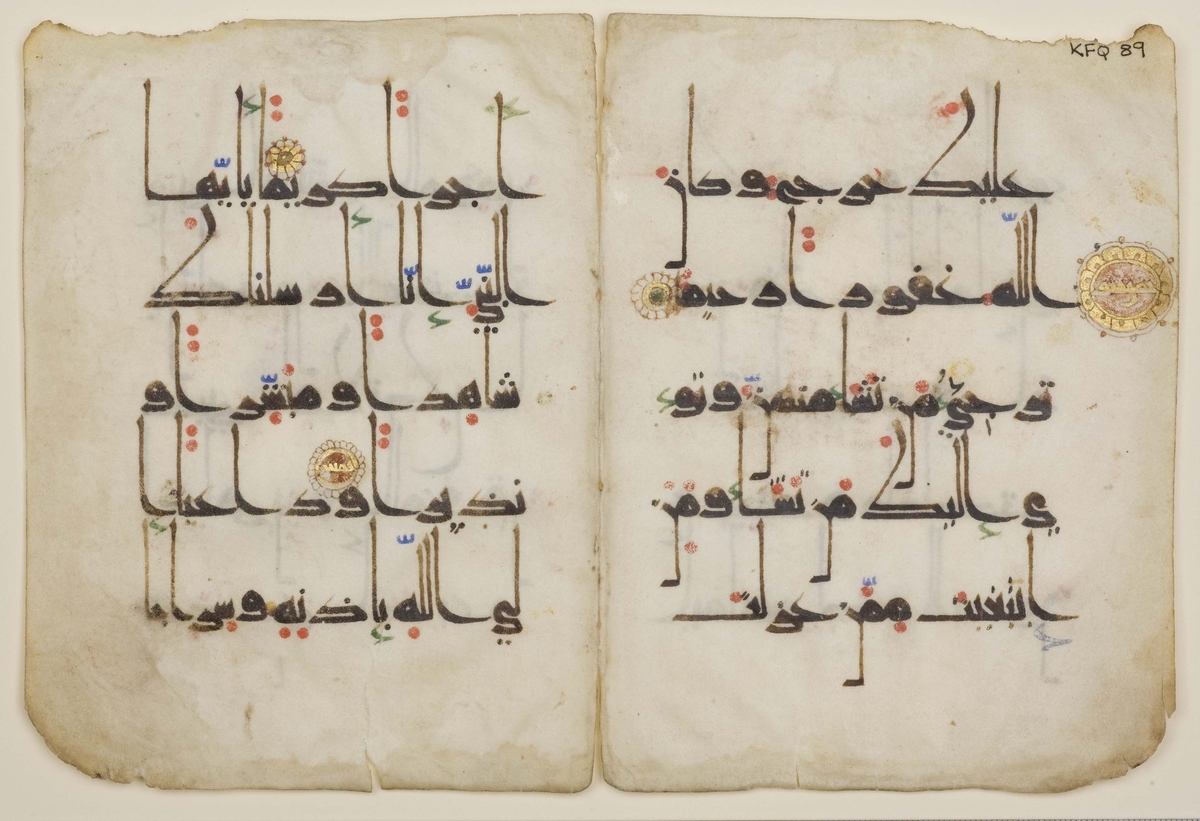 KFQ 89
عليك حرج وكان
الله غفورا رحيما
ترجي من تشا منهن وتو
ي اليك من تشا ومن
ابتغيت ممن عزلت
اجرا كريما يايها
النبي انا ارسلناك
شاهدا ومبشرا و
نذيرا وداعيا ا
لى الله باذنه وسراجا